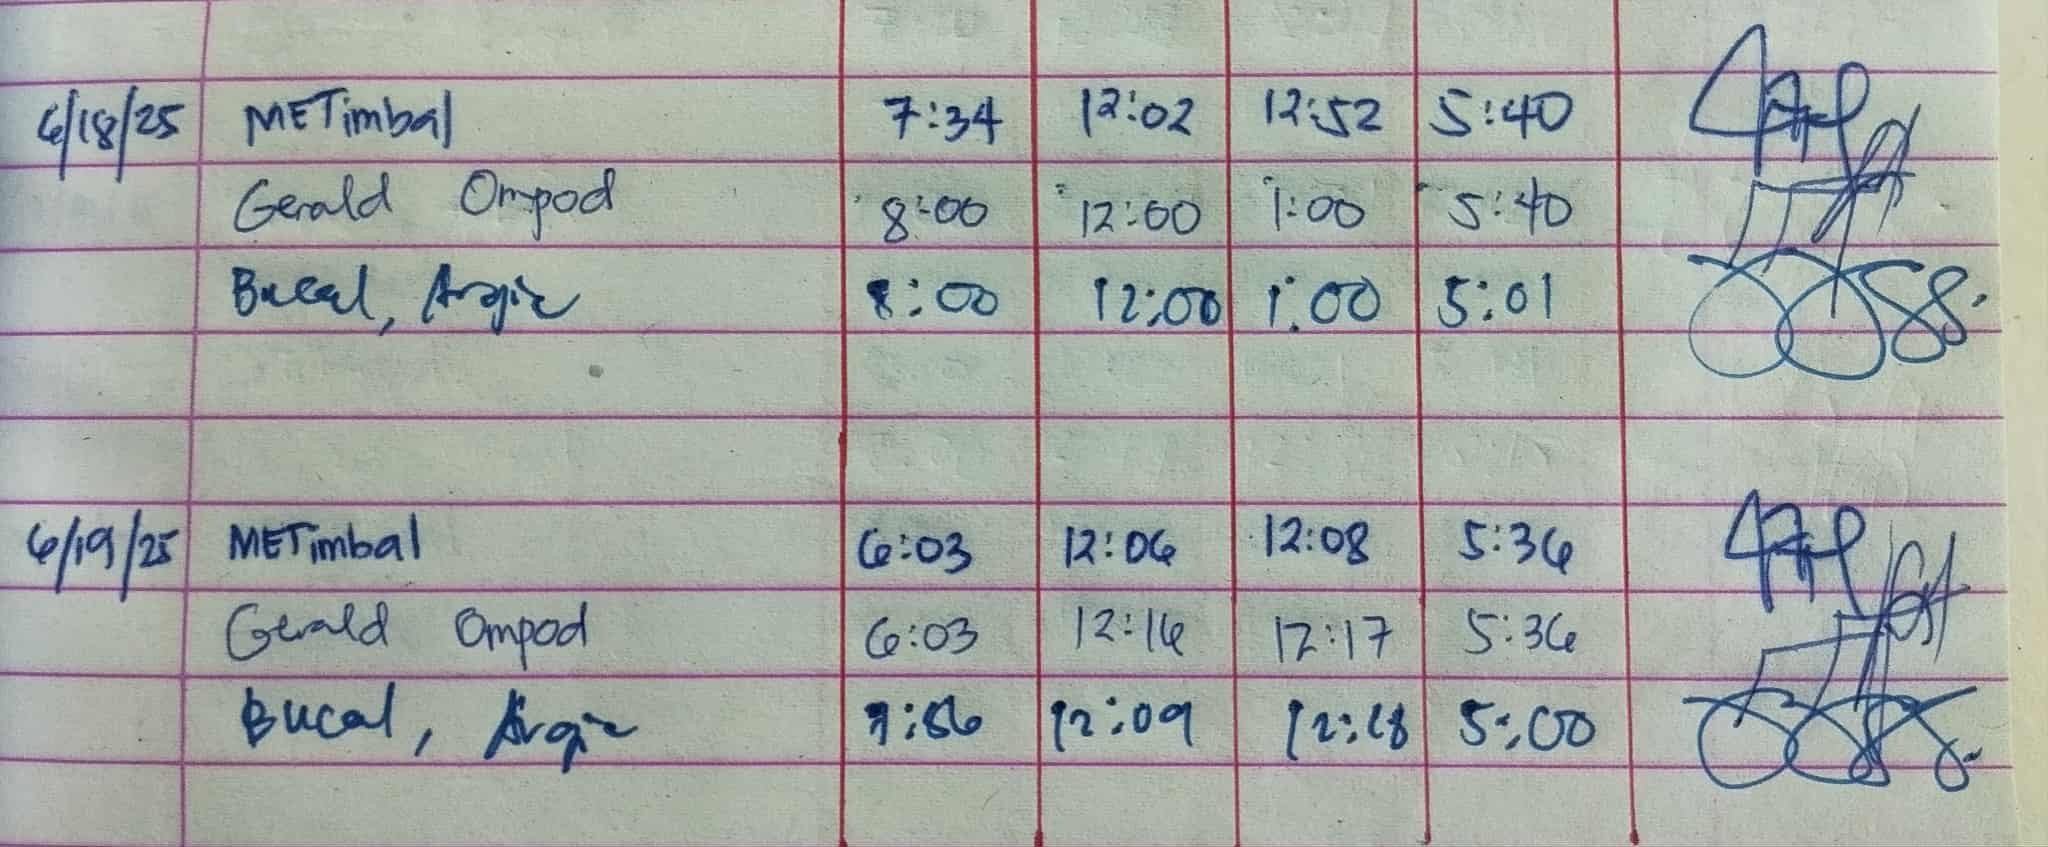 6/18/25 METimbal 7:34 12:02 12:52 5:40
Gerald Ompod 8:00 12:00 1:00 5:40
Bucal, Argie 8:00 12:00 1:00 5:01
6/19/25 METimbal 6:03 12:06 12:08 5:36
Gerald Ompod 6:03 12:16 12:17 5:36
Bucal, Argie 7:56 12:09 12:18 5:00